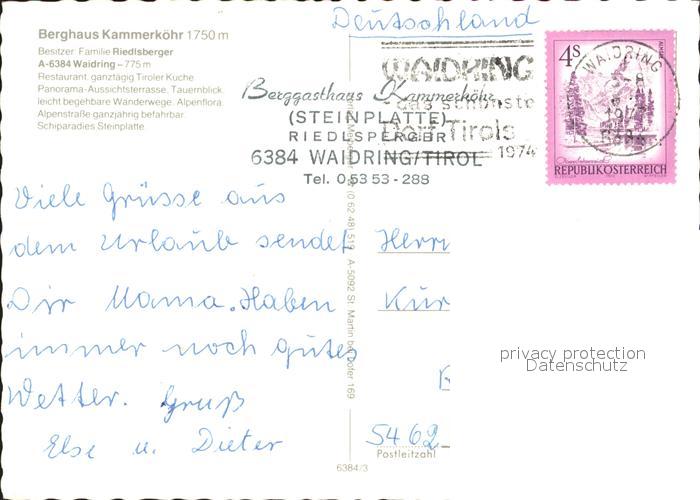 Berghaus Kammerköhr 1750 m
Besitzer: Familie Riedlsberger
A-6384 Waidring – 775 m
Restaurant, ganztägig Tiroler Küche
Panorama-Aussichtsterrasse, Tauernblick,
leicht begehbare Wanderwege, Alpenflora.
Alpenstraße ganzjährig befahrbar.
Schiparadies Steinplatte.
Deutschland
WAIDRING
das schönste
Dorf Tirols
1974
Berggasthaus Kammerköhr
(STEINPLATTE)
RIEDLSPERGER
6384 WAIDRING/TIROL
Tel. 0 53 53 - 288
4S
WAIDRING
REPUBLIK ÖSTERREICH
Viele Grüsse aus
dem Urlaub sendet
Dir Mama. Haben
immer noch gutes
Wetter. Gruß
Else u. Dieter
A-5092 St. Martin bei Lofer 169
Herrn
Kur
5462
Postleitzahl
6384/3
privacy protection
Datenschutz